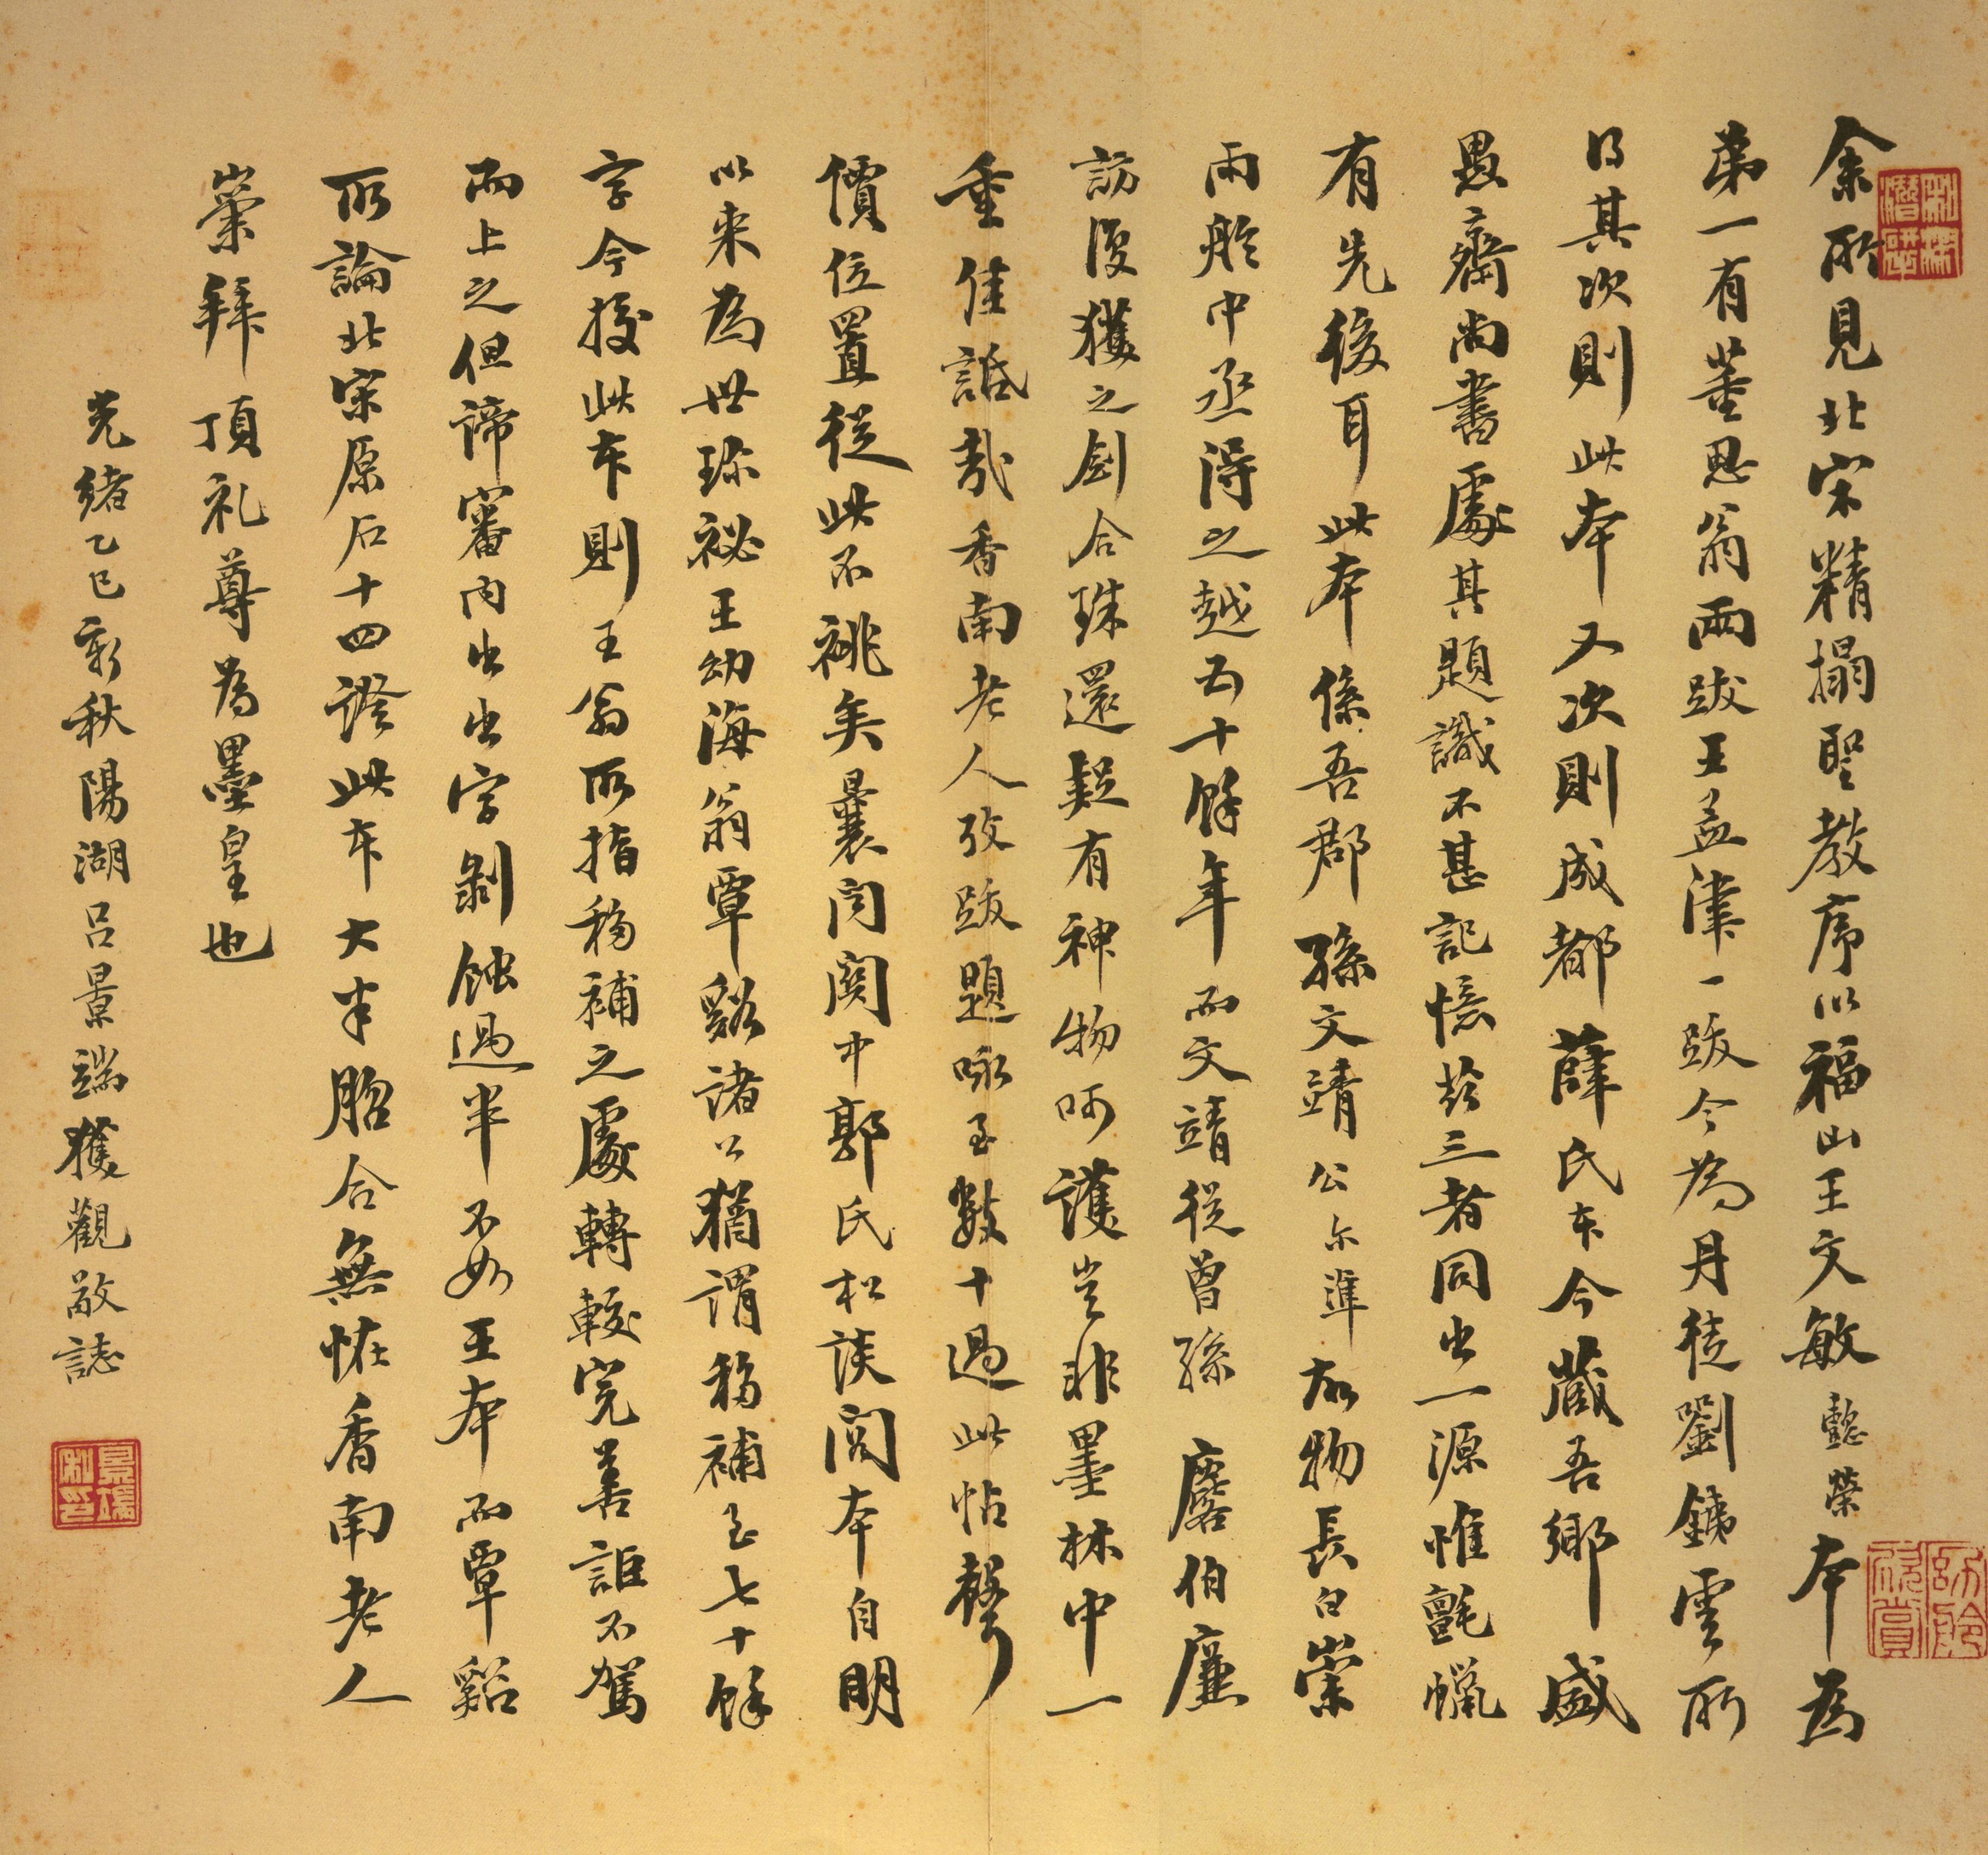 余所見北宋精搨聖教序以福山王文敏懿榮本為
弟一有董思翁兩跋王孟津一跋今為丹徒劉銕雲所
得其次則此本又次則成都薛氏本今藏吾鄉盛
愚齋尚書處其題識不甚記憶茲三者同出一源惟氈蠟
有先後耳此本係吾郡孫文靖公尔準故物長白崇
雨舲中丞得之越五十餘年而文靖從曾孫麐伯廉
訪復獲之劍合珠還疑有神物呵護豈非墨林中一
重佳話哉香南老人攷跋題咏至數十過此帖聲
價位置從此不祧矣曩閱關中郭氏松談閣本自明
以来為世珎祕王幼海翁覃谿諸公猶謂移補至七十餘
字今挍此本則王翁所指移補之處轉較完善詎不駕
而上之但諦審内出出字剝蝕過半不如王本而覃谿
所論北宋原石十四證此本大半脗合無恠香南老人
崇拜頂礼尊為墨皇也
光緒乙巳新秋陽湖呂景端獲觀敬誌
景端私印